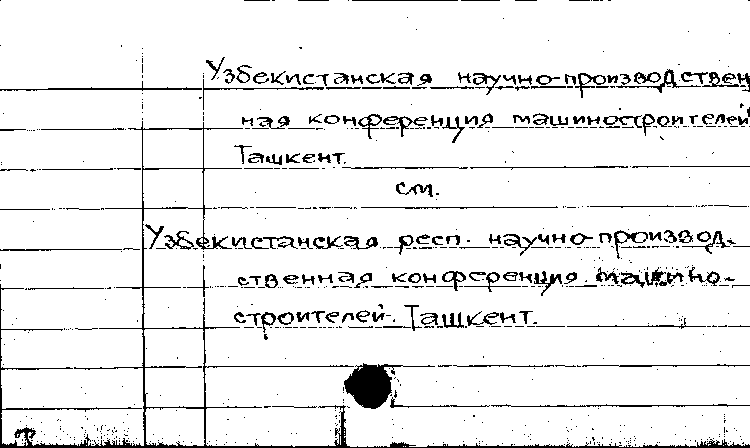 Узбекистанская научно-производствен
ная конференция машиностроителей
Ташкент.
см.
Узбекистанская респ. научно-производ-
ственная конференция машино-
строителей. Ташкент.